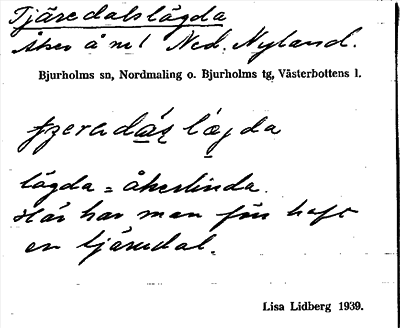 Tjäredalslägda
åker å nr 1 Ned. Nyland.
Bjurholms sn, Nordmaling o. Bjurholms tg, Västerbottens l.
lägda = åkerlinda.
Här har man förr haft
en tjärudal.
Lisa Lidberg 1939.